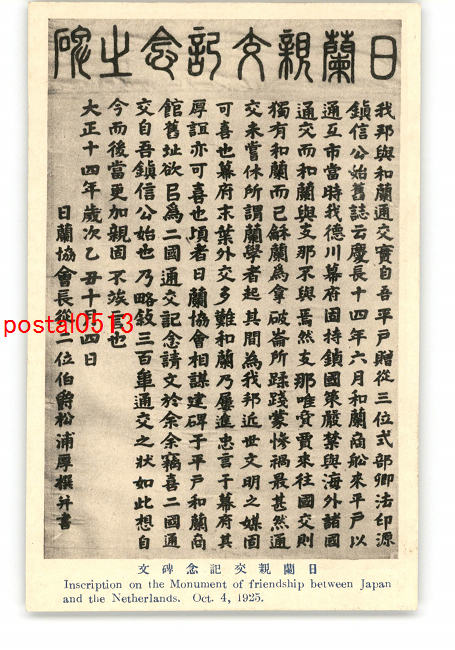 日蘭親交記念之碑
我邦與和蘭通交實自吾平戶贈從三位式部卿法印源
鎮信公始舊誌云慶長十四年六月和蘭商舩來平戶以
通互市當時我德川幕府固持鎖國策嚴禁與海外諸國
通交而和蘭與支那不與焉然支那唯賣買來往國交則
獨有和蘭而已穌蘭為拿破崙所蹂踐蒙慘禍最甚然通
交未嘗休所謂蘭學者起其間為我邦近世文明之媒固
可喜也幕府末葉外交多難和蘭乃屢進忠言于幕府其
厚誼亦可喜也頃者日蘭協會相謀建碑于平戶和蘭商
館舊址欲㠯為二國通交記念請文於余余竊喜二國通
交自吾鎮信公始也乃略敍三百年通交之狀如此想自
今而後當更加親固不竢言也
大正十四年歲次乙丑十月四日
日蘭協會長從二位伯爵松浦厚撰并書
postal0513
日蘭親交記念碑文
Inscription on the Monument of friendship between Japan
and the Netherlands. Oct. 4, 1925.